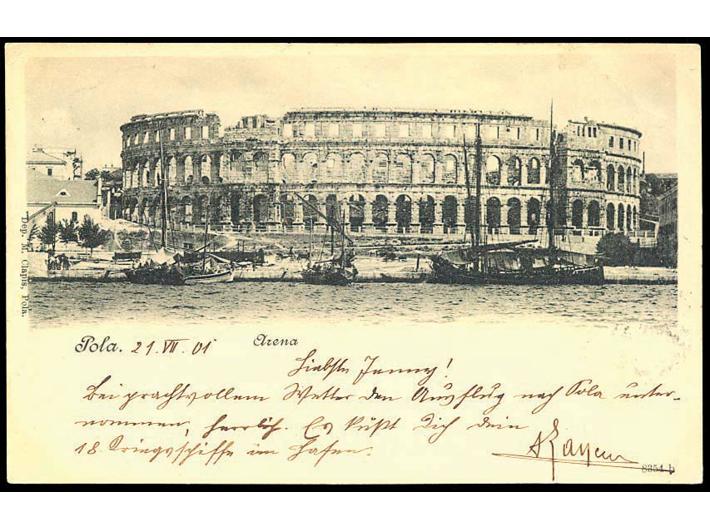 Dep. M. Clapis, Pola.
Pola. 21. VII. 01 Arena
Liebste Jenny!
Bei prachtvollem Wetter den Ausflug nach Pola unter-
nommen, herrlich. Es küßt Dich dein
18 Kriegsschiffe im Hafen.
8354 b